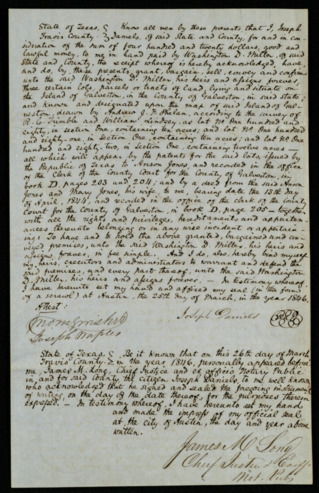 State of Texas } Know all men by these presents that I, Joseph
Travis County } Daniels, of said State and County, for and in con-
sideration of the sum of four hundred and twenty dollars, good and
lawful money, to me in hand paid by Washington D. Miller, of said
State and County, the receipt whereof is hereby acknowledged, have,
and do, by these presents, grant, bargain, sell, convey and confirm
unto the said Washington D. Miller, his heirs and assigns forever,
three certain lots, parcels or tracts of land, lying and situate on
the Island of Galveston, in the County of Galveston, in said State;
and known and designated upon the map of said Island of Gal-
veston, drawn by according to the survey of
R. C. Trimble and William Lindsey, as lot No One hundred and
eighty, in section One, containing ten acres; and lot No One hundred
and eighty-one in Section One, containing ten acres; and lot No One
hundred and eighty-two, in Section One, containing twelve acres
all which will appear, by the patents for the said lots, issued by
the Republic of Texas to and recorded in the office
of the Clerk of the County Court for the County of Galveston, in
book D. pages 203 and 204; and by a deed from the said
and Mary to me, bearing date the day
of April, and recorded in the office of the Clerk of the County
Court for the County of Galveston, in book D, page together
with all the right and privileges, hereditaments and appurten-
ances thereunto belonging or in any wise incident or appertain-
ing. To have and to hold the above granted, bargained and con-
veyed premises, unto the said Washington D Miller, his heirs and
assigns forever, in fee simple. And I do, also, hereby bind myself
my heirs, executors and administrators to warrant and defend the
said premises, and every part thereof, unto the said Washington
D. Miller, his heirs and assigns forever. In testimony whereof
I have hereunto set my hand and affixed my seal (in the form
of a scrawl) at Austin, the 26th day of March, in the year 1846.
Attest:
Joseph Daniels
Joseph Waples
State of Texas, } Be it known that on this 26th day of March
Travis County } in the year 1846, personally appeared before
me, James M. Long, Chief Justice and ex officio Notary Public
in, and for said County the citizen Joseph Daniels, to me well known,
who acknowledged that he signed and sealed the foregoing instrument
of writing, on the day of the date thereof, for the purposes therein
expressed. In testimony whereof, I have hereunto set my hand
and made the impress of my official seal
at the city of Austin, the day and year above
written.
James M Long
Chief Justice
Not. Pub.